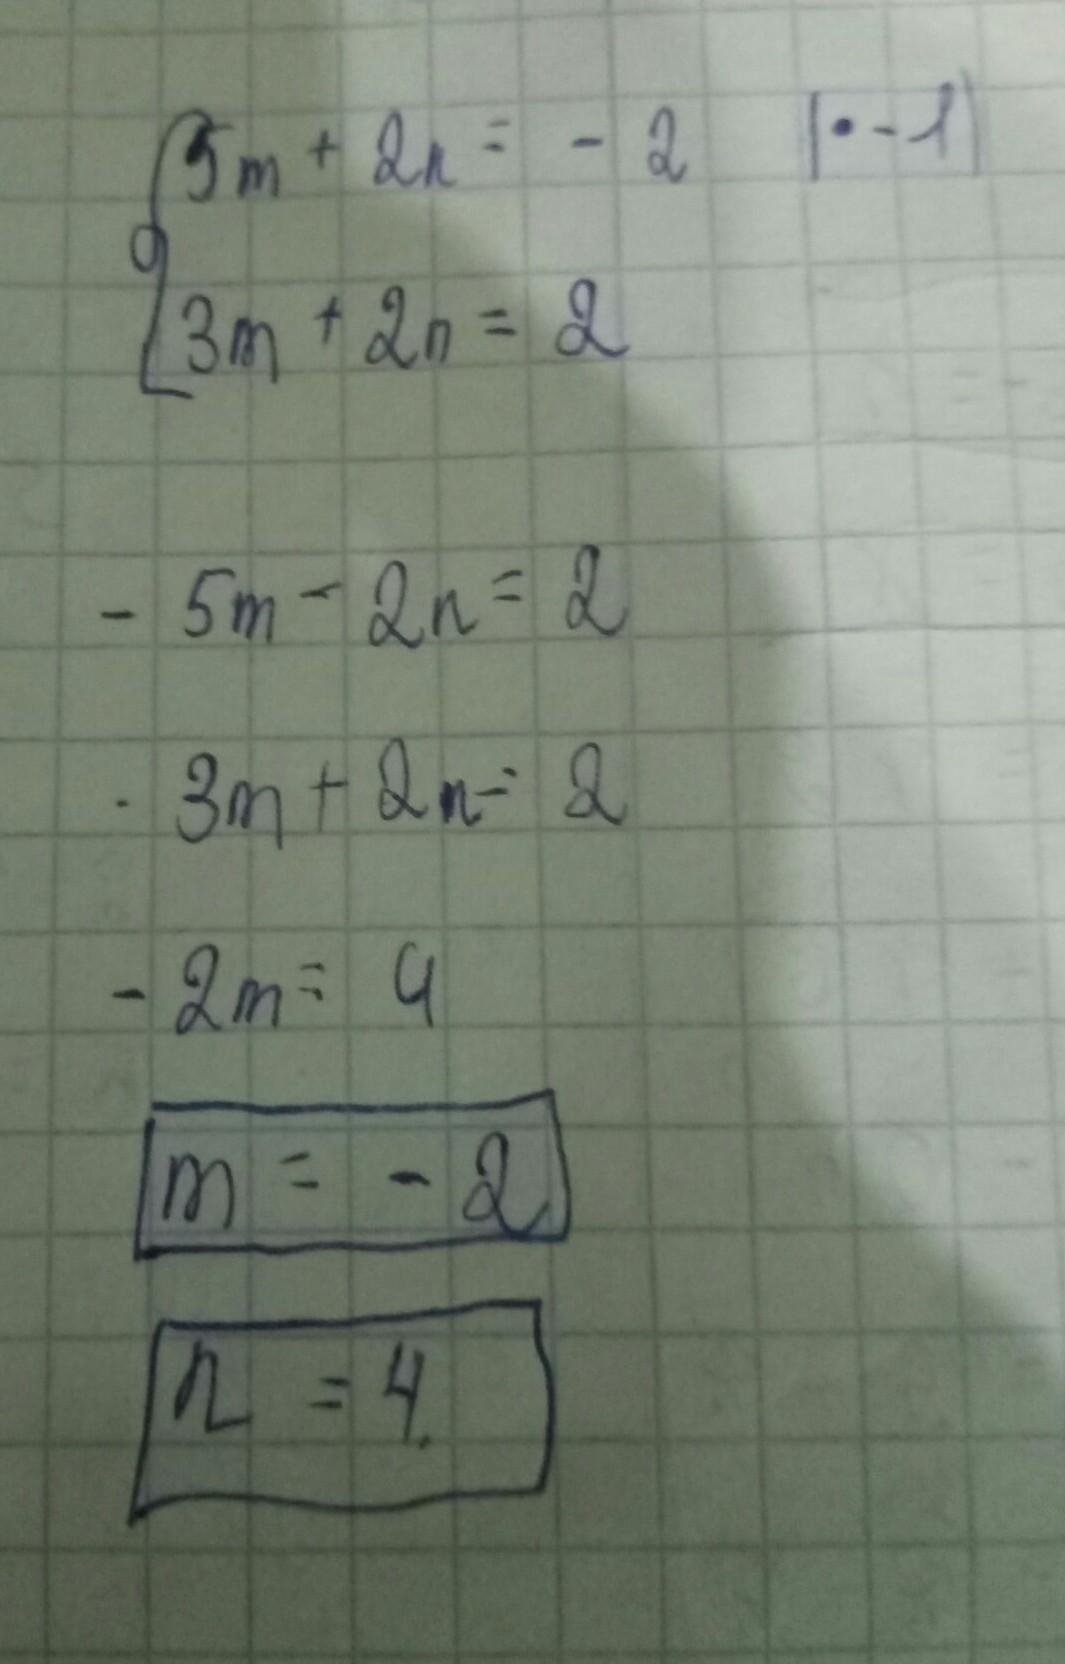 5m + 2n = - 2 |• -1|
3m + 2n = 2
- 5m - 2n = 2
3m + 2n = 2
- 2m = 4
m = - 2
n = 4.